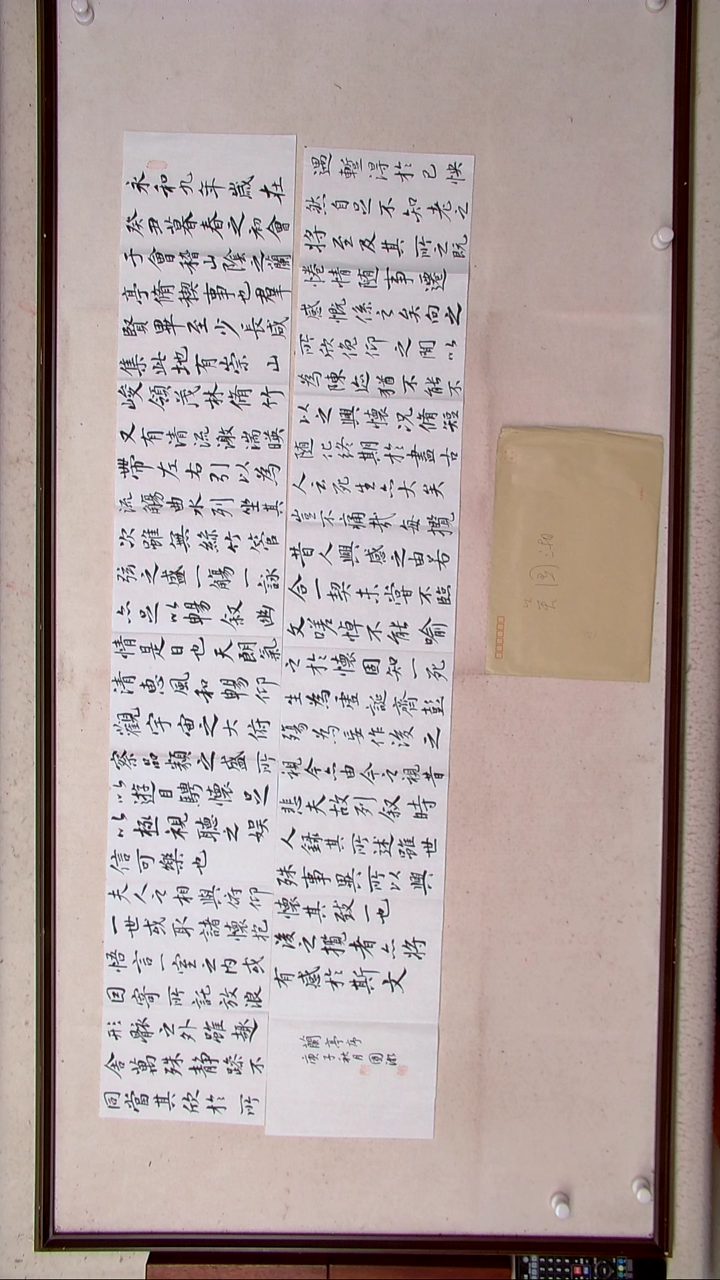 永和九年歲在
癸丑暮春之初會
于會稽山陰之蘭
亭脩禊事也羣
賢畢至少長咸
集此地有崇山
峻領茂林脩竹
又有清流激湍暎
帶左右引以為
流觴曲水列坐其
次雖無絲竹管
弦之盛一觴一詠
亦足以暢敘幽
情是日也天朗氣
清惠風和暢仰
觀宇宙之大俯
察品類之盛所
以遊目騁懷足
以極視聽之娛
信可樂也
夫人之相與俯仰
一世或取諸懷抱
悟言一室之內或
因寄所託放浪
形骸之外雖趣
舍萬殊靜躁不
同當其欣於所
遇暫得於己怏
然自足不知老之
將至及其所之既
惓情隨事遷
感慨係之矣向之
所欣俛仰之閒以
為陳迹猶不能不
以之興懷况脩短
隨化終期於盡古
人云死生亦大矣
豈不痛哉每攬
昔人興感之由若
合一契未嘗不臨
文嗟悼不能喻
之於懷固知一死
生為虛誕齊彭
殤為妄作後之
視今亦由今之視昔
悲夫故列敘時
人錄其所述雖世
殊事異所以興
懷其致一也
後之攬者亦將
有感於斯文
蘭亭序
庚子秋月